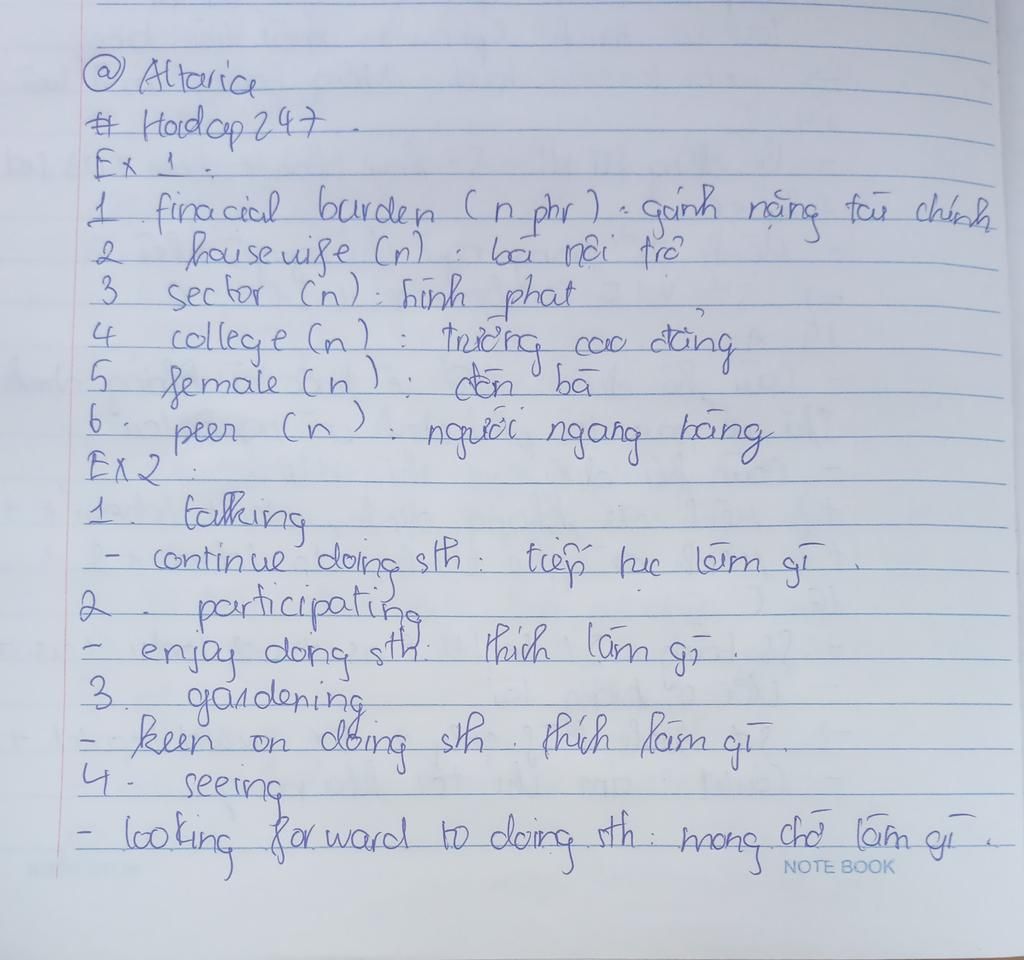 @ Altarica
# Hoidap247.
Ex 1:
1 finacial burden (n phr): gánh nặng tài chính
2 housewife (n): bà nội trợ
3 sector (n): hình phạt
4 college (n): trường cao đẳng
5 female (n): đàn bà
6. peer (n): người ngang hàng
Ex2:
1. talking
- continue doing sth: tiếp tục làm gì.
2. participating
- enjoy dong sth: thích làm gì.
3. gardening
- keen on doing sth. thích làm gì.
4. seeing
- looking forward to doing sth: mong chờ làm gì.
NOTE BOOK